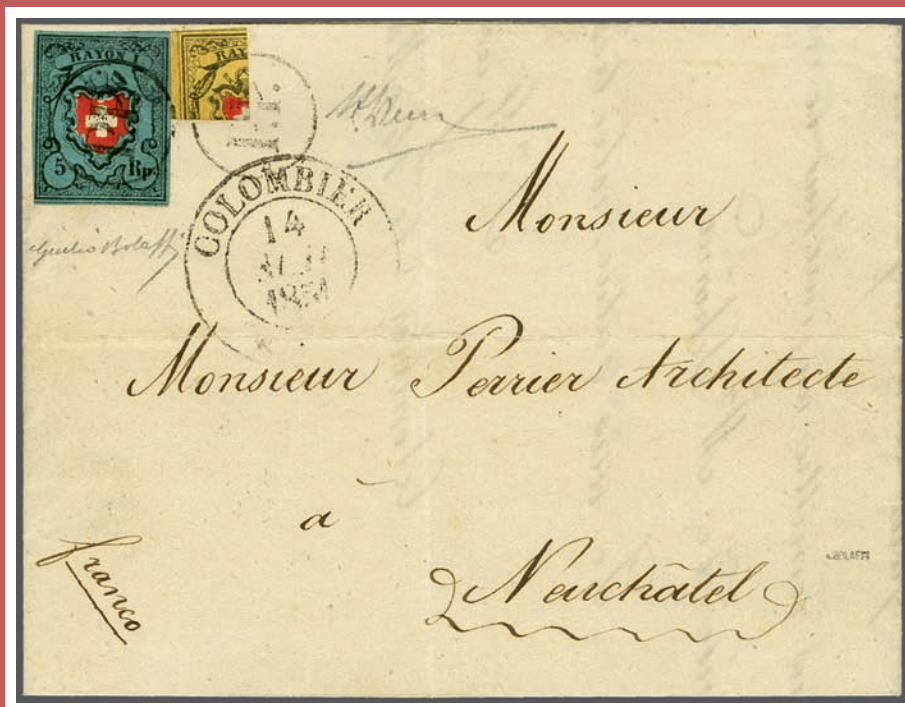 RAYON I.
5 Rp.
RAY
P.P.
COLOMBIER
14
1851
Giulio Bolaffi
Monsieur
Monsieur Perrier Architecte
à
Neuchâtel
franco